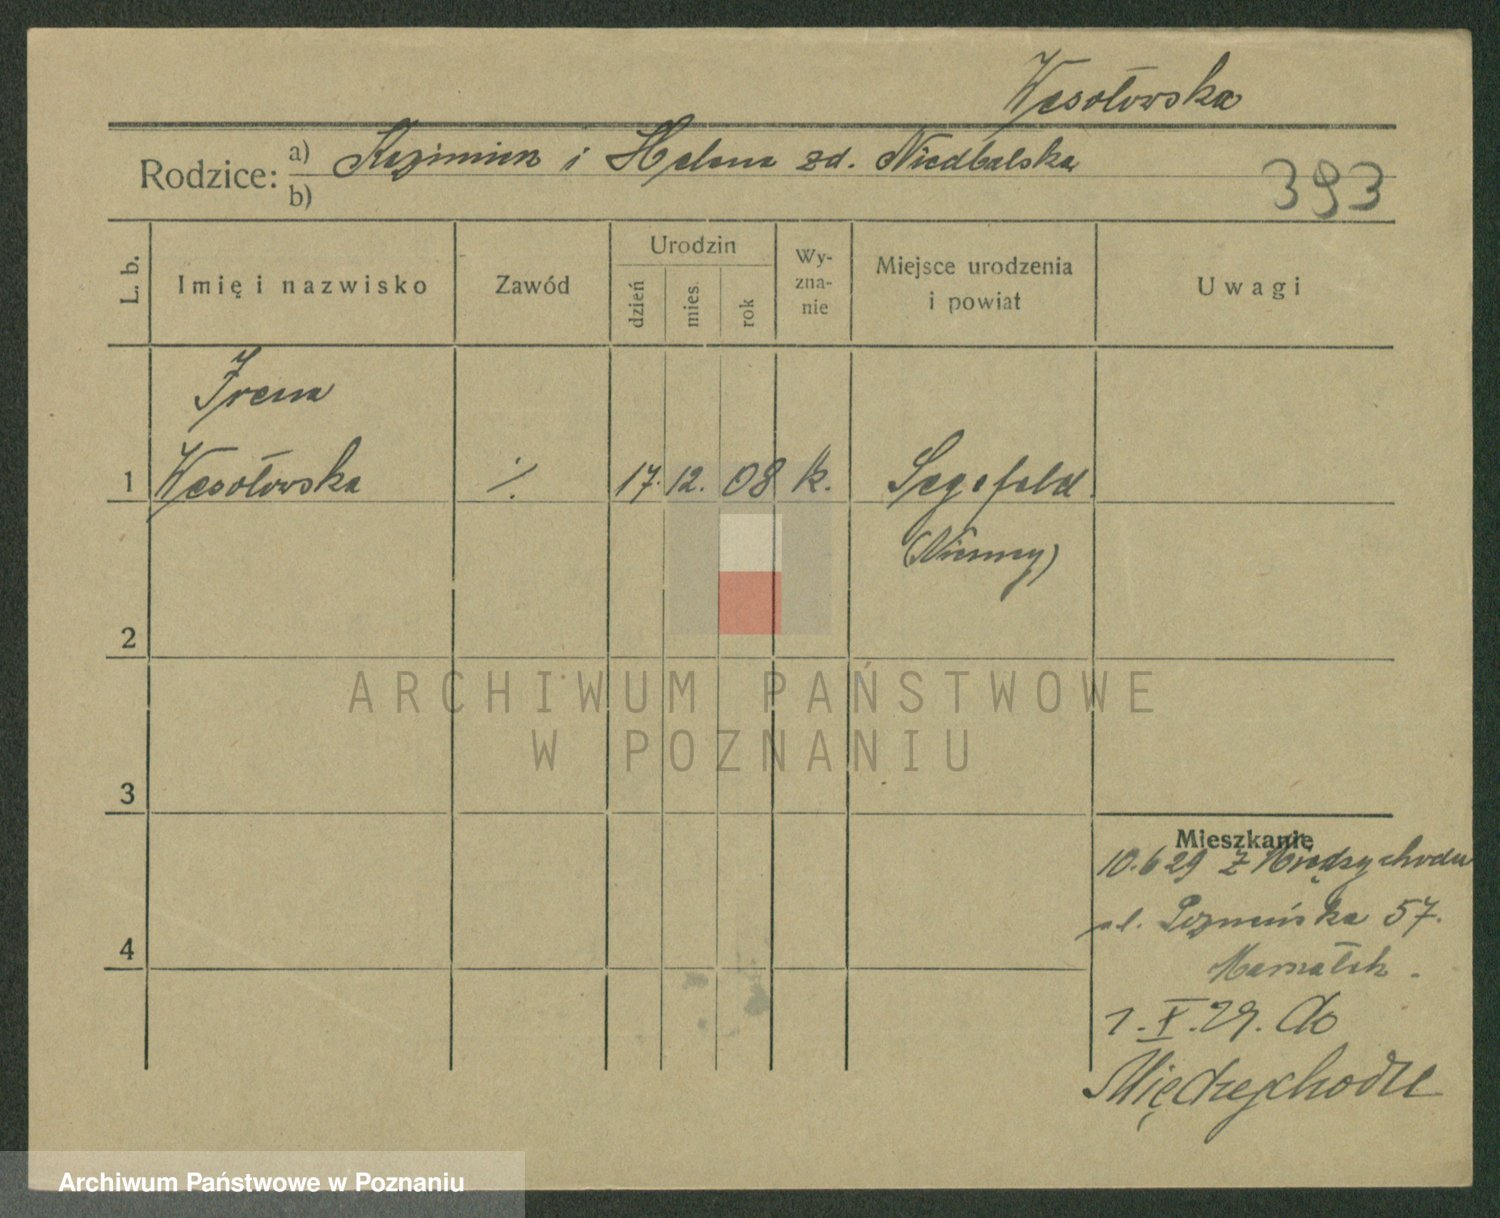 Wesołowska
Rodzice: a) Kazimierz i Helena zd. Niedbalska
b)
393
L. b.
Imię i nazwisko
Zawód
Urodzin
dzień
mies.
rok
Wy-
zna-
nie
Miejsce urodzenia
i powiat
Uwagi
Irena
1 Wesołowska ./. 17. 12. 08 k. Segefeld
(Niemcy)
2
3
4
Mieszkanie
10.6 29 z Międzychodu
ul. Poznańska 57.
1.X.29. do
Międzychodu
ARCHIWUM PAŃSTWOWE
W POZNANIU
Archiwum Państwowe w Poznaniu